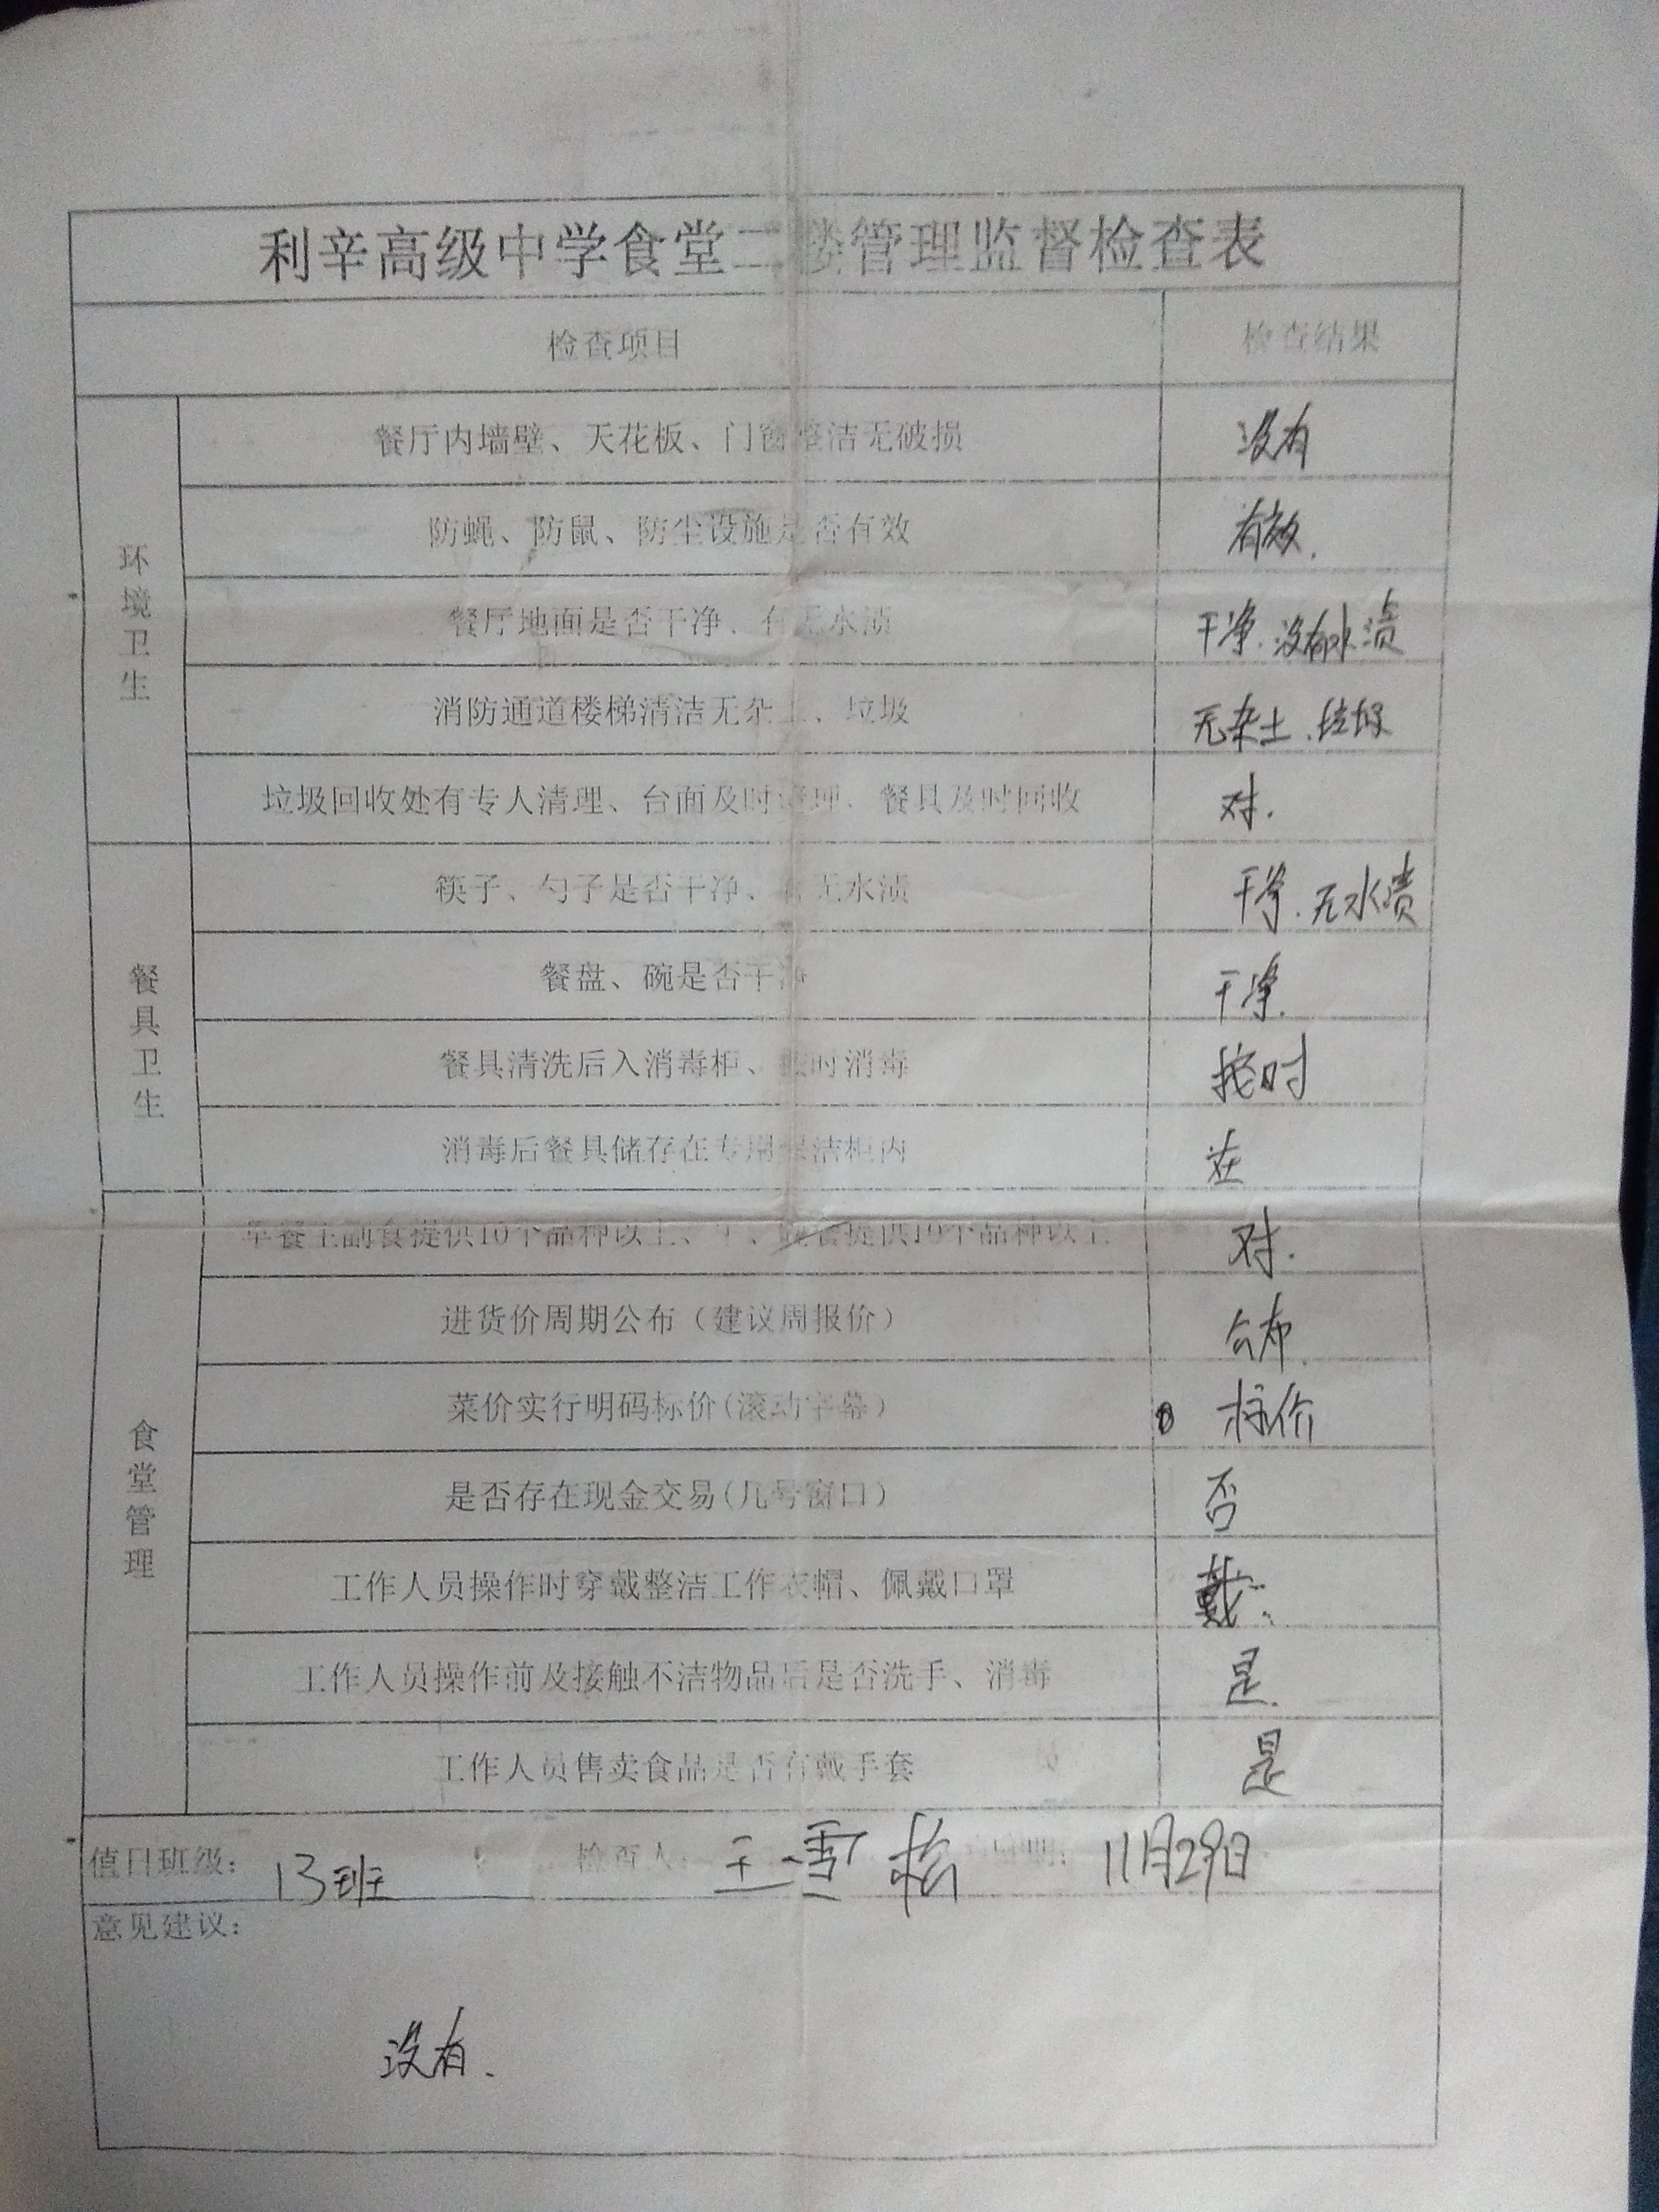 利辛高级中学食堂二楼管理监督检查表
检查项目 检查结果
环境卫生
餐厅内墙壁、天花板、门窗整洁无破损 没有
防蝇、防鼠、防尘设施是否有效 有效.
餐厅地面是否干净、有无水渍 干净.没有水渍
消防通道楼梯清洁无杂土、垃圾 无杂土.垃圾
垃圾回收处有专人清理、台面及时清理、餐具及时回收 对.
餐具卫生
筷子、勺子是否干净、有无水渍 干净.无水渍
餐盘、碗是否干净 干净.
餐具清洗后入消毒柜、按时消毒 按时
消毒后餐具储存在专用保洁柜内 在
食堂管理
早餐主副食提供10个品种以上、午、晚餐提供10个品种以上 对.
进货价周期公布（建议周报价） 公布.
菜价实行明码标价(滚动字幕） 标价
是否存在现金交易(几号窗口） 否
工作人员操作时穿戴整洁工作衣帽、佩戴口罩 戴.
工作人员操作前及接触不洁物品后是否洗手、消毒 是.
工作人员售卖食品是否有戴手套 是
值日班级： 13班 检查人： 王雪松 日期： 11月29日
意见建议：
没有.